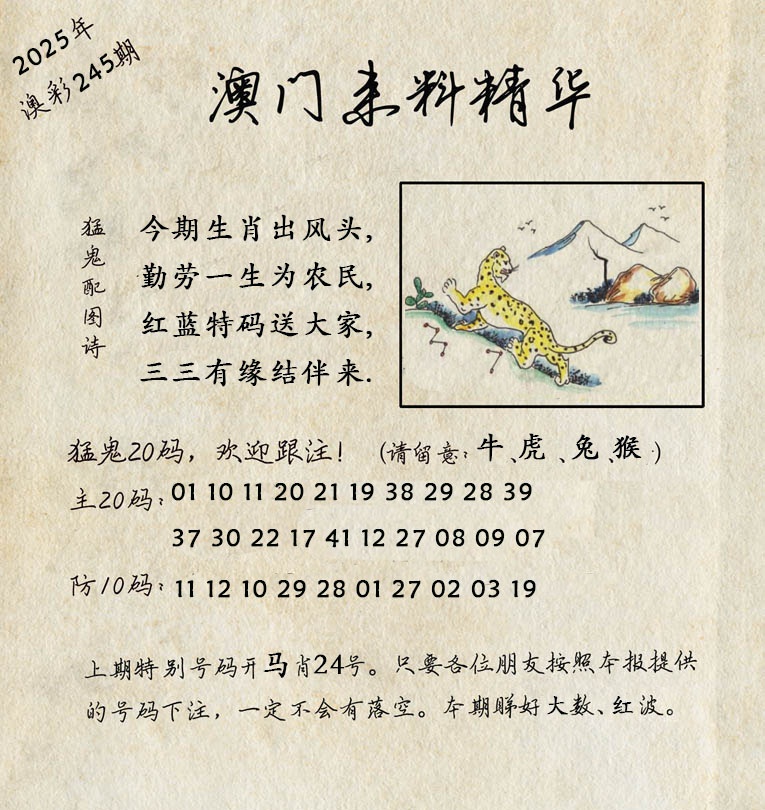 2025年
澳彩245期
澳门来料精华
猛鬼配图诗
今期生肖出风头,
勤劳一生为农民,
红蓝特码送大家,
三三有缘结伴来.
猛鬼20码，欢迎跟注！（请留意：牛、虎、兔、猴、）
主20码：01 10 11 20 21 19 38 29 28 39
37 30 22 17 41 12 27 08 09 07
防10码：11 12 10 29 28 01 27 02 03 19
上期特别号码开马肖24号。只要各位朋友按照本报提供
的号码下注，一定不会有落空。本期睇好大数、红波。